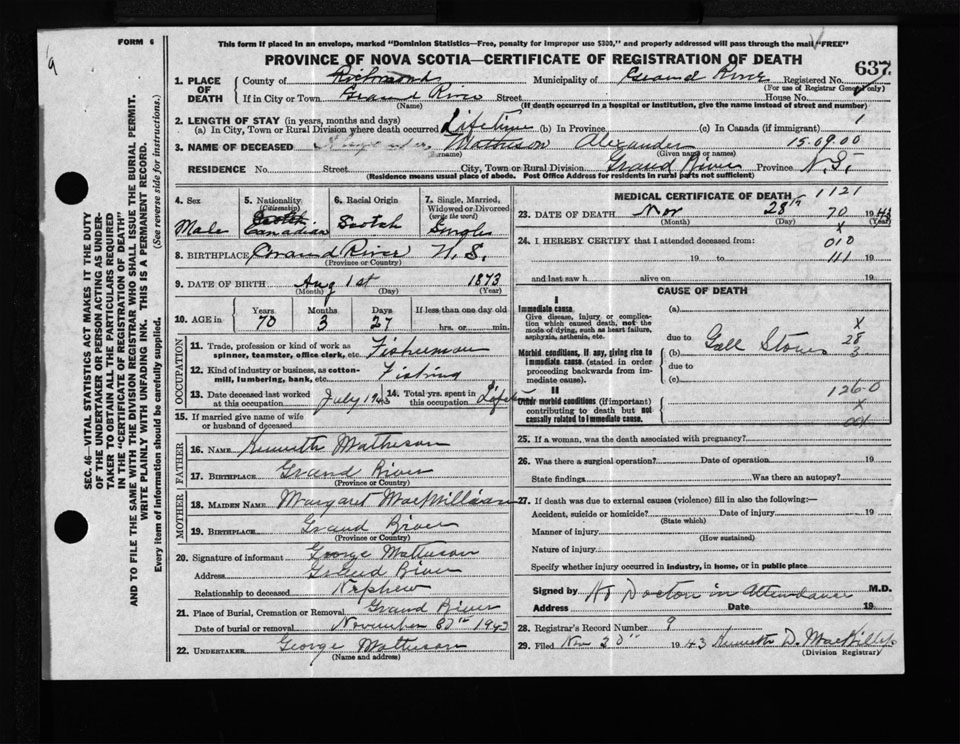 FORM 6
This form if placed in an envelope, marked "Dominion Statistics—Free, penalty for improper use $300," and properly addressed will pass through the mail "FREE"
PROVINCE OF NOVA SCOTIA—CERTIFICATE OF REGISTRATION OF DEATH
9
637
1. PLACE OF DEATH
County of Richmond Municipality of Grand River Registered No.
(For use of Registrar General only)
If in City or Town Grand River Street House No.
(Name) (If death occurred in a hospital or institution, give the name instead of street and number)
2. LENGTH OF STAY (in years, months and days)
(a) In City, Town or Rural Division where death occurred Lifetime (b) In Province (c) In Canada (if immigrant) 1
3. NAME OF DECEASED Matheson Alexander 15.09.00
(Surname) (Given name or names)
RESIDENCE No. Street City, Town or Rural Division Grand River Province N.S.
(Residence means usual place of abode. Post Office Address for residents in rural parts not sufficient)
4. Sex Male
5. Nationality (Citizenship) Scotch Canadian
6. Racial Origin Scotch
7. Single, Married, Widowed or Divorced (write the word) Single
8. BIRTHPLACE Grand River N.S.
(Province or Country)
9. DATE OF BIRTH Aug 1st 1873
(Month) (Day) (Year)
10. AGE in Years 70 Months 3 Days 27 If less than one day old
hrs. or min.
OCCUPATION
11. Trade, profession or kind of work as spinner, teamster, office clerk, etc. Fisherman
12. Kind of industry or business, as cotton-mill, lumbering, bank, etc. Fishing
13. Date deceased last worked at this occupation July 1943
14. Total yrs. spent in this occupation
15. If married give name of wife or husband of deceased
FATHER
16. NAME Kenneth Matheson
17. BIRTHPLACE Grand River
(Province or Country)
MOTHER
18. MAIDEN NAME Margaret MacWilliam
19. BIRTHPLACE Grand River
(Province or Country)
20. Signature of informant George Matheson
Address Grand River
Relationship to deceased Nephew
21. Place of Burial, Cremation or Removal Grand River
Date of burial or removal November 1943
22. UNDERTAKER George Matheson
(Name and address)
MEDICAL CERTIFICATE OF DEATH 1121
23. DATE OF DEATH Nov 28th 70 1943
(Month) (Day) (Year)
24. I HEREBY CERTIFY that I attended deceased from: X
010
19 to 19
and last saw h alive on 19
CAUSE OF DEATH
I
Immediate cause.
Give disease, injury or complication which caused death, not the mode of dying, such as heart failure, asphyxia, asthenia, etc.
(a)
due to
Morbid conditions, if any, giving rise to immediate cause. (stated in order proceeding backwards from immediate cause).
(b) Gall Stones
due to
(c)
X
28
3
II
Other morbid conditions (if important) contributing to death but not causally related to immediate cause.
126.0
X
25. If a woman, was the death associated with pregnancy?
26. Was there a surgical operation? Date of operation 19
State findings Was there an autopsy?
27. If death was due to external causes (violence) fill in also the following:—
Accident, suicide or homicide? Date of injury 19
(State which)
Manner of injury
(How sustained)
Nature of injury
Specify whether injury occurred in industry, in home, or in public place
Signed by No Doctor in Attendance M.D.
Address Date 19
28. Registrar's Record Number 9
29. Filed Nov 1943 Kenneth D. MacKillop
(Division Registrar)
SEC. 46—VITAL STATISTICS ACT MAKES IT THE DUTY
OF THE UNDERTAKER OR PERSON ACTING AS UNDER-
TAKER TO OBTAIN ALL THE PARTICULARS REQUIRED
IN THE "CERTIFICATE OF REGISTRATION OF DEATH"
AND TO FILE THE SAME WITH THE DIVISION REGISTRAR WHO SHALL ISSUE THE BURIAL PERMIT.
WRITE PLAINLY WITH UNFADING INK. THIS IS A PERMANENT RECORD.
Every item of information should be carefully supplied. (See reverse side for instructions.)